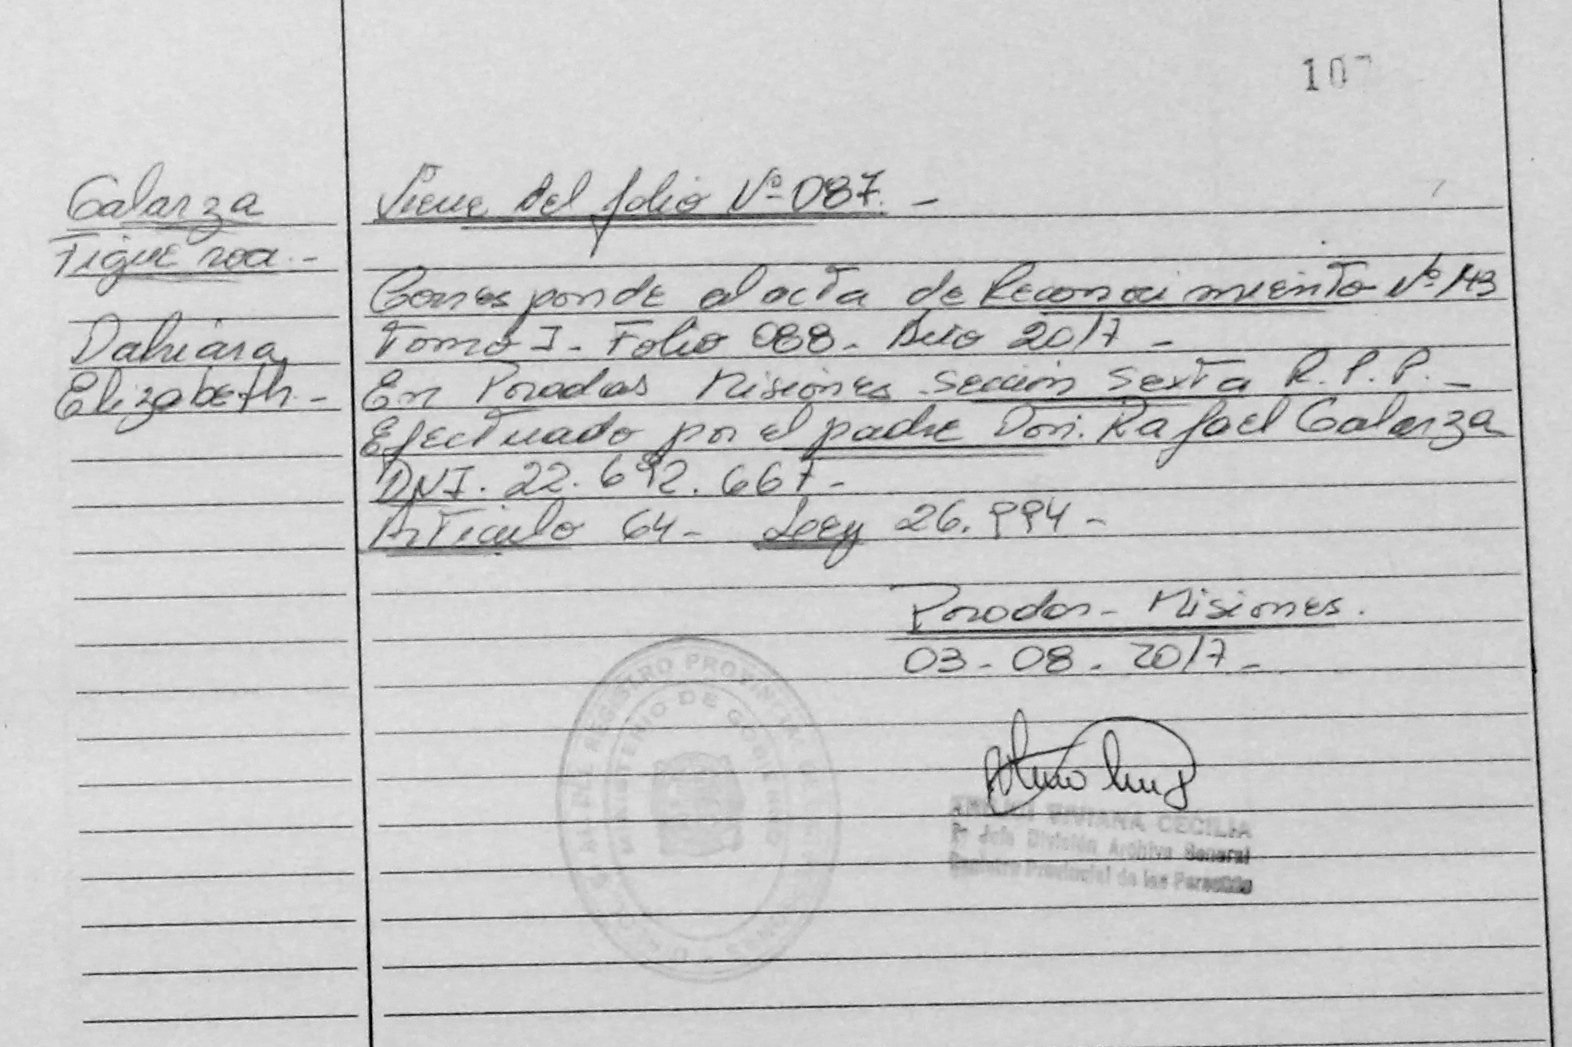 10
Galarza
Figueroa.-
Dahiara
Elizabeth.-
Viene del folio Nº 087.-
Corresponde al acta de Reconocimiento Nº 143
Tomo I - Folio 088 - Año 2017 -
En Posadas Misiones Sección Sexta R.P.P.-
Efectuado por el padre Don. Rafael Galarza
DNI. 22.692.667-
Artículo 64- Ley 26.994-
Posadas - Misiones.
03-08-2017-
REGISTRO PROVINCIAL DE LAS PERSONAS
MINISTERIO DE GOBIERNO
VIVIANA CECILIA
Jefe División Archivo General
Registro Provincial de las Personas